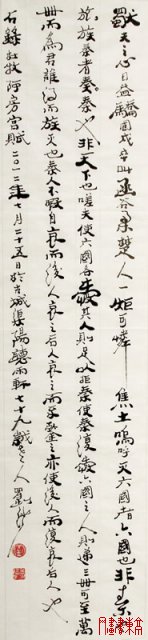 獨夫之心日益驕固戍卒叫函谷舉楚人一炬可憐焦土嗚呼滅六國者六國也非秦也
族秦者秦也非天下也嗟夫使六國各愛其人則足以拒秦使秦復愛六國之人則遞三世可至萬
世而為君誰得而族滅也秦人不暇自哀而後人哀之後人哀之而不鑒之亦使後人而復哀後人也
右錄杜牧阿房宮賦二〇一二年七月二十五日於古城陽聽雨軒七十九歲老人劉